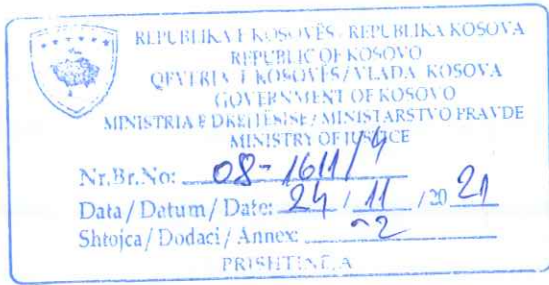 REPUBLIKA E KOSOVËS - REPUBLIKA KOSOVA
REPUBLIC OF KOSOVO
QEVERIA E KOSOVËS / VLADA KOSOVA
GOVERNMENT OF KOSOVO
MINISTRIA E DREJTËSISË / MINISTARSTVO PRAVDE
MINISTRY OF JUSTICE
Nr.Br.No: 08-1611/4
Data / Datum / Date: 24 / 11 / 20 21
Shtojca / Dodaci / Annex: 2
PRISHTINË, A